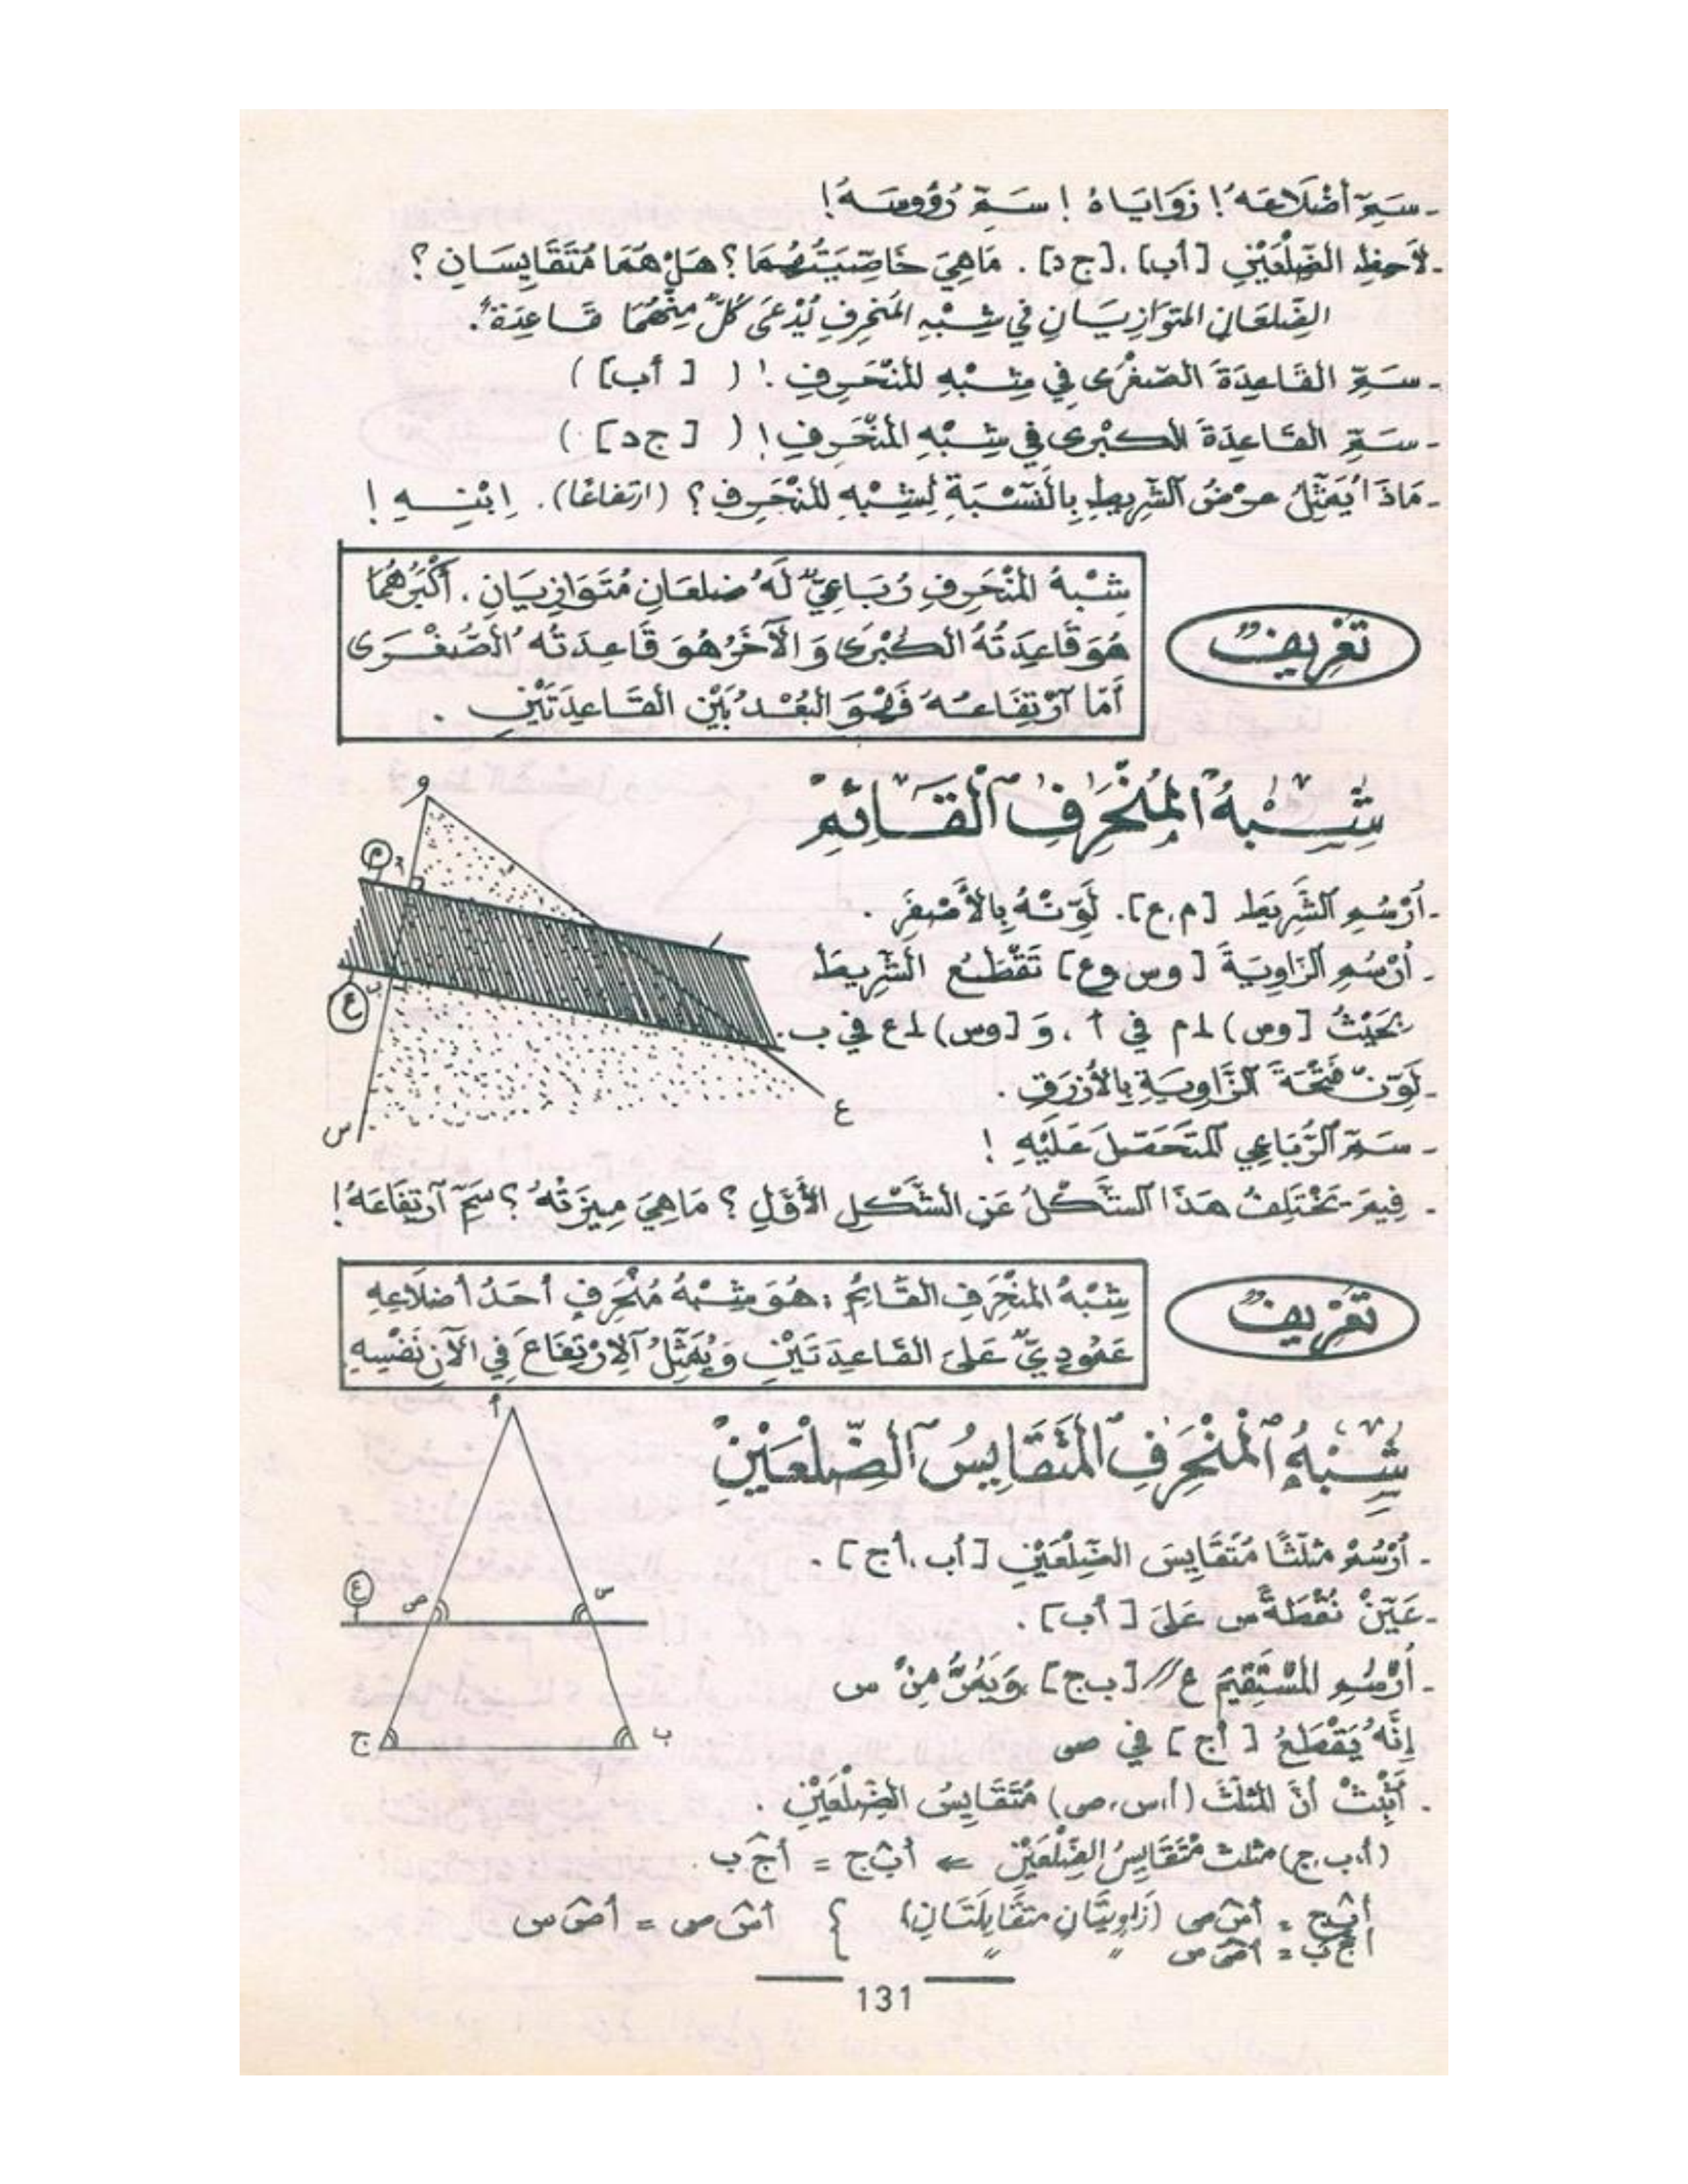 - سَمِّ أَضْلَاعَهُ ! زَوَايَاهُ ! سَمِّ رُؤُوسَهُ !
- لَاحِظِ الضِّلْعَيْنِ [أب] ، [ج د] . مَاهِيَ خَاصِّيَتُهُمَا ؟ هَلْ هُمَا مُتَقَايِسَانِ ؟
الضِّلعَانِ المتوَازِيَانِ فِي شِبْهِ المُنحَرِفِ يُدْعَى كُلٌّ مِنْهُمَا قَاعِدَةً .
- سَمِّ القَاعِدَةَ الصّغْرَى فِي شِبْهِ المُنْحَرِفِ ! ( [أب] )
- سَمِّ القَاعِدَةَ الكُبْرى فِي شِبْهِ المُنْحَرِفِ ! ( [ج د] )
- مَاذَا يُمَثِّلُ عرْضُ الشَّرِيطِ بِالنِّسْبَةِ لِشِبْهِ المُنْحَرِفِ ؟ (ارتفاعًا) . اِبْنِهِ !
تَعْرِيفٌ
شِبْهُ المُنْحَرِفِ رُبَاعِيٌّ لَهُ ضلعَانِ مُتَوَازِيَانِ . أَكْبَرُهُمَا
هُوَ قَاعِدَتُهُ الكُبْرَى وَالْآخَرُ هُوَ قَاعِدَتُه الصُّغْرَى
أَمّا آرْتِفَاعُهُ فَهُوَ البُعْدُ بَيْنَ القَاعِدَتَيْنِ .
شِبْهُ المُنْحَرِفِ القَائِمِ
- أُرْسُمِ الشَّرِيطَ [م،ع] . لَوِّنْهُ بِالأَصْفَرِ .
- أُرْسُمِ الزَاوِيَةَ [وس،وع] تَقْطَعُ الشَّرِيطَ
بحَيْثُ [وس) ⊥ م في أ ، وَ [وس) ⊥ ع في ب .
- لَوِّنْ فَتْحَةَ الزَّاوِيَةِ بِالأَزْرَقِ .
- سَمِّ الرُّبَاعِي المتَحَصّلَ عَلَيْهِ !
- فِيمَ يَخْتَلِفُ هَذَا الشَّكْلُ عَنِ الشَّكْلِ الأَوَّلِ ؟ مَا هِيَ مِيزَتُهُ ؟ سَمِّ آرْتِفَاعَهُ !
و
م
أ
ب
ع
س
ع
تَعْرِيفٌ
شِبْهُ المُنْحَرِفِ القَائِمُ : هُوَ شِبْهُ مُنْحَرِفٍ أَحَدُ أَضلَاعِهِ
عَمُودِيٌّ عَلَى القَاعِدَتَيْنِ وَيُمَثِّلُ آلِارْتِفَاعَ فِي الآنِ نَفْسِهِ
شِبْهُ المُنْحَرِفِ المُتَقَايِسُ الضِّلْعَيْنِ
- أُرْسُمْ مثلّثًا مُتَقَايِسَ الضِّلْعَيْنِ [أب،أج] .
- عَيِّنْ نُقْطَةً س عَلَى [أب] .
- أُرْسُمِ المُسْتَقِيمَ ع // [ب ج] وَيَمُرُّ مِنْ س
إِنَّهُ يَقْطَعُ [أج] في ص
- أَثْبِتْ أنَّ المثلّثَ (أ،س،ص) مُتَقَايِسُ الضِّلْعَيْنِ .
(أ،ب،ج) مثلث مُتَقَايِسُ الضِّلْعَيْنِ ⇐ أب̂ج = أج̂ب
أب̂ج = أس̂ص (زَاوِيَتَانِ متقَابِلَتَانِ) } أس̂ص = أص̂س
أج̂ب = أص̂س " "
أ
ع
ص
س
ج
ب
131